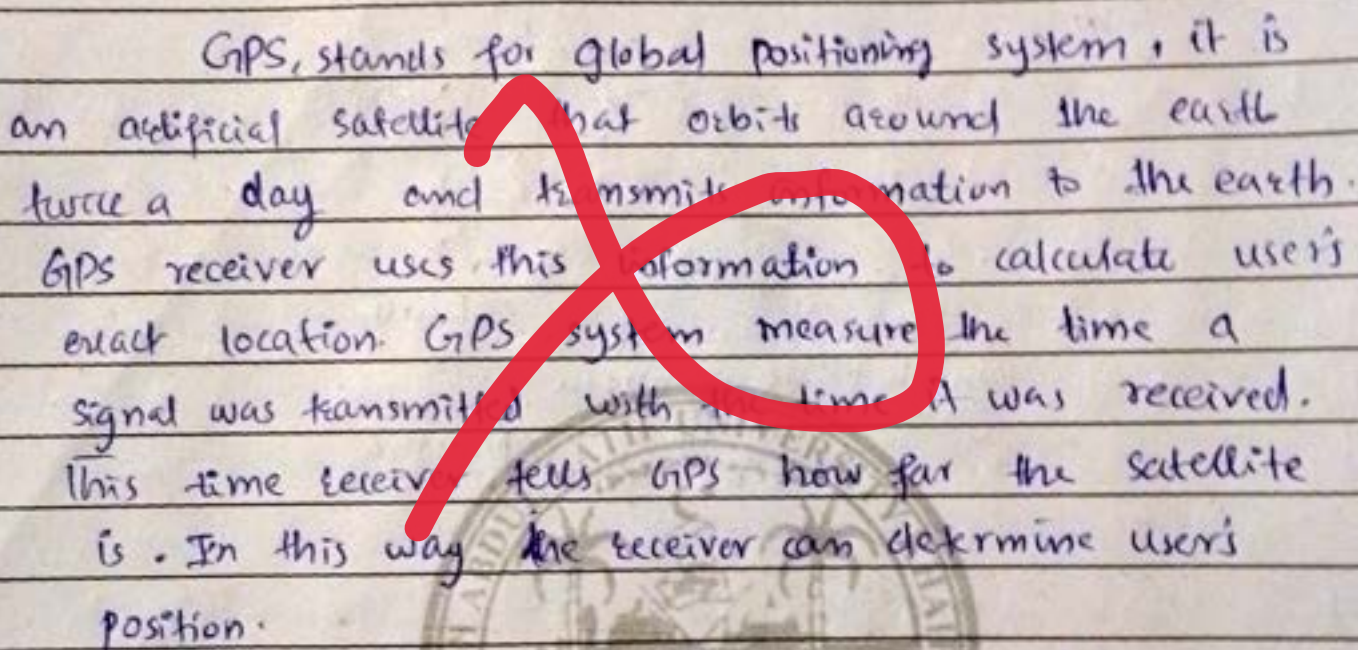 GPS, stands for global positioning system, it is
an artificial satellite that orbits around the earth
twice a day and transmits information to the earth.
GPS receiver uses this information to calculate user's
exact location. GPS system measure the time a
signal was transmitted with the time it was received.
This time receiver tells GPS how far the satellite
is. In this way the receiver can determine user's
position.